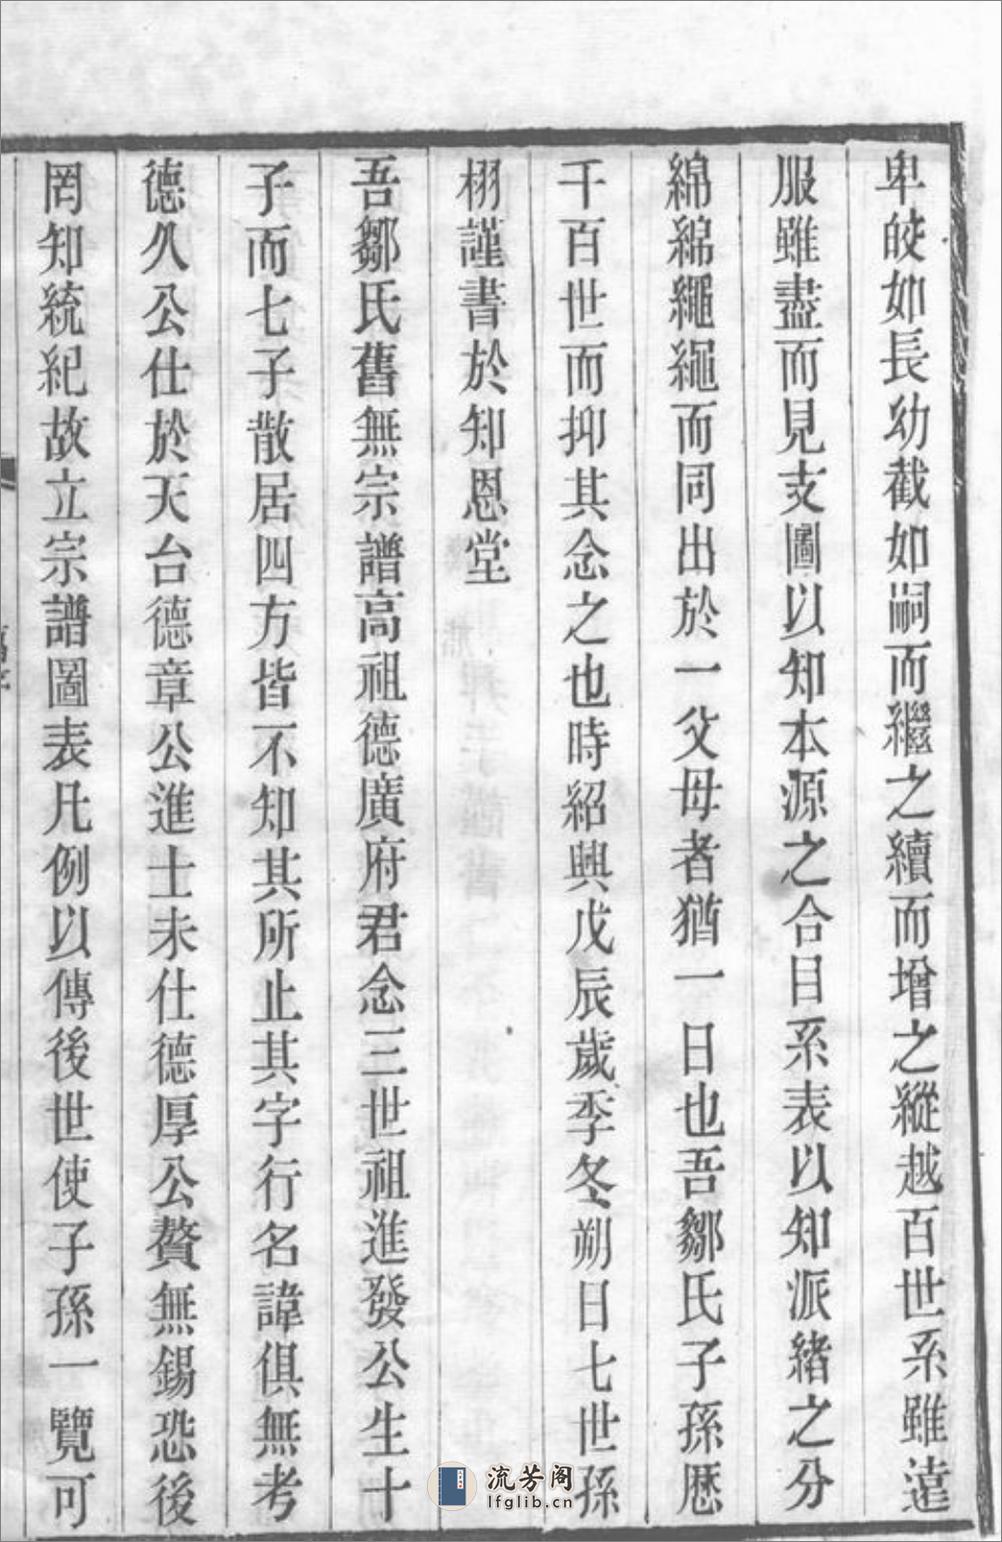 卑皎如長幼截如嗣而繼之續而增之縱越百世系雖遠
服雖盡而見支圖以知本源之合目系表以知派緒之分
綿綿繩繩而同出於一父母者猶一日也吾鄒氏子孫歷
千百世而抑其念之也時紹興戊辰歲季冬朔日七世孫
栩謹書於知恩堂
吾鄒氏舊無宗譜高祖德廣府君念三世祖進發公生十
子而七子散居四方皆不知其所止其字行名諱俱無考
德久公仕於天台德章公進士未仕德厚公贅無錫恐後
罔知統紀故立宗譜圖表凡例以傳後世使子孫一覽可
流芳阁
lfglib.cn